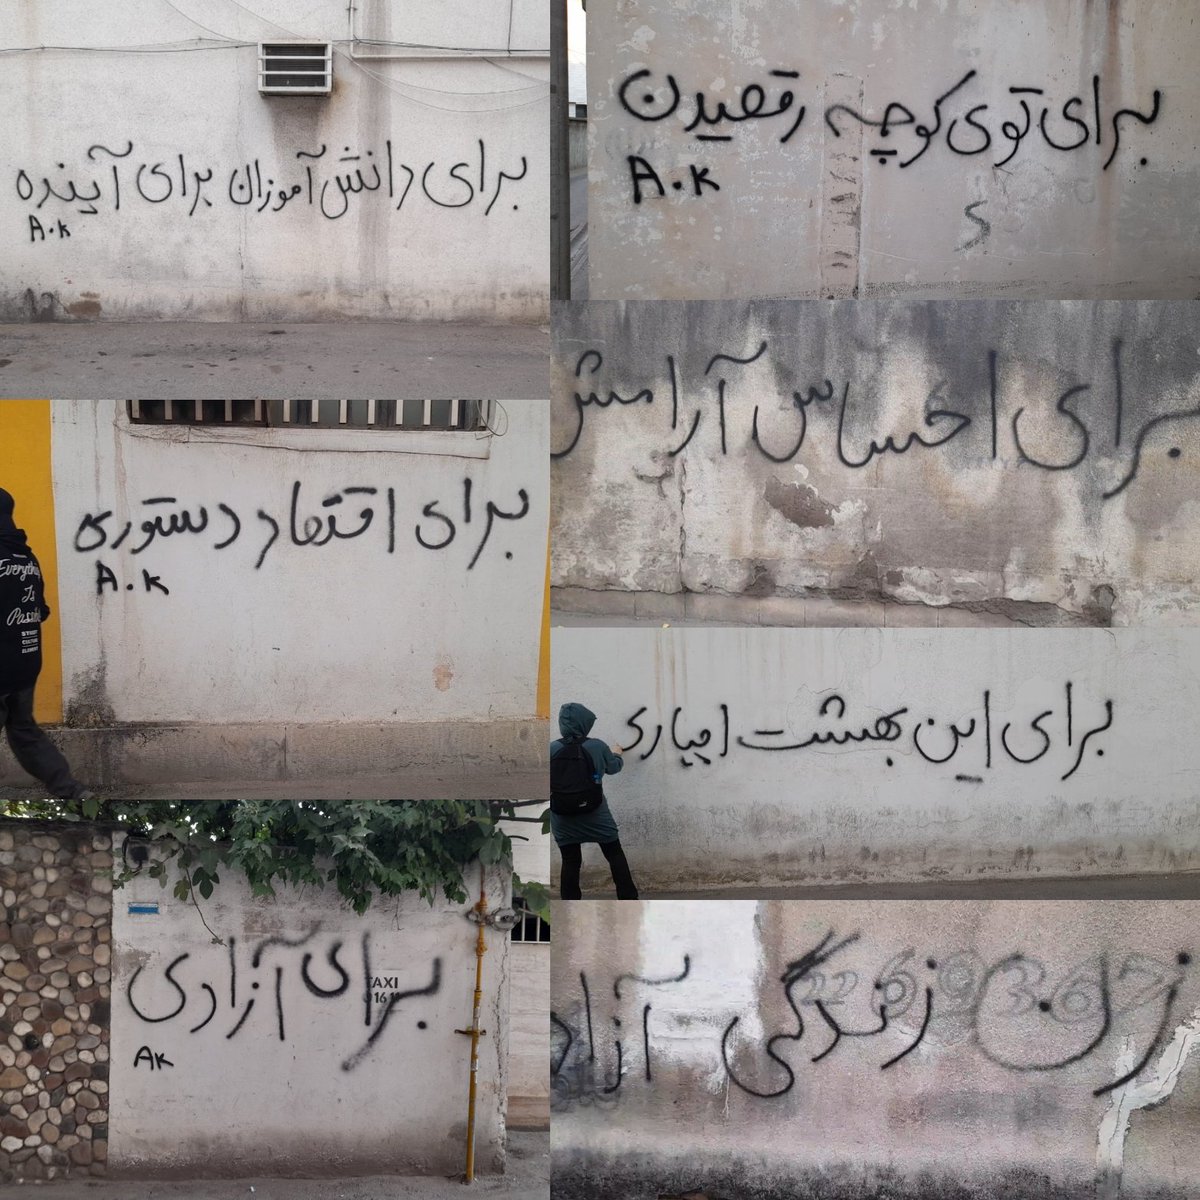 برای دانش‌آموزان برای آینده
A.K
برای توی کوچه رقصیدن
A.K
برای احساس آرامش
برای اقتصاد دستوری
A.K
Everything
Is
STREET
CULTURE
ELEMENT
برای این بهشت اجباری
برای آزادی
TAXI
AK
زن زندگی